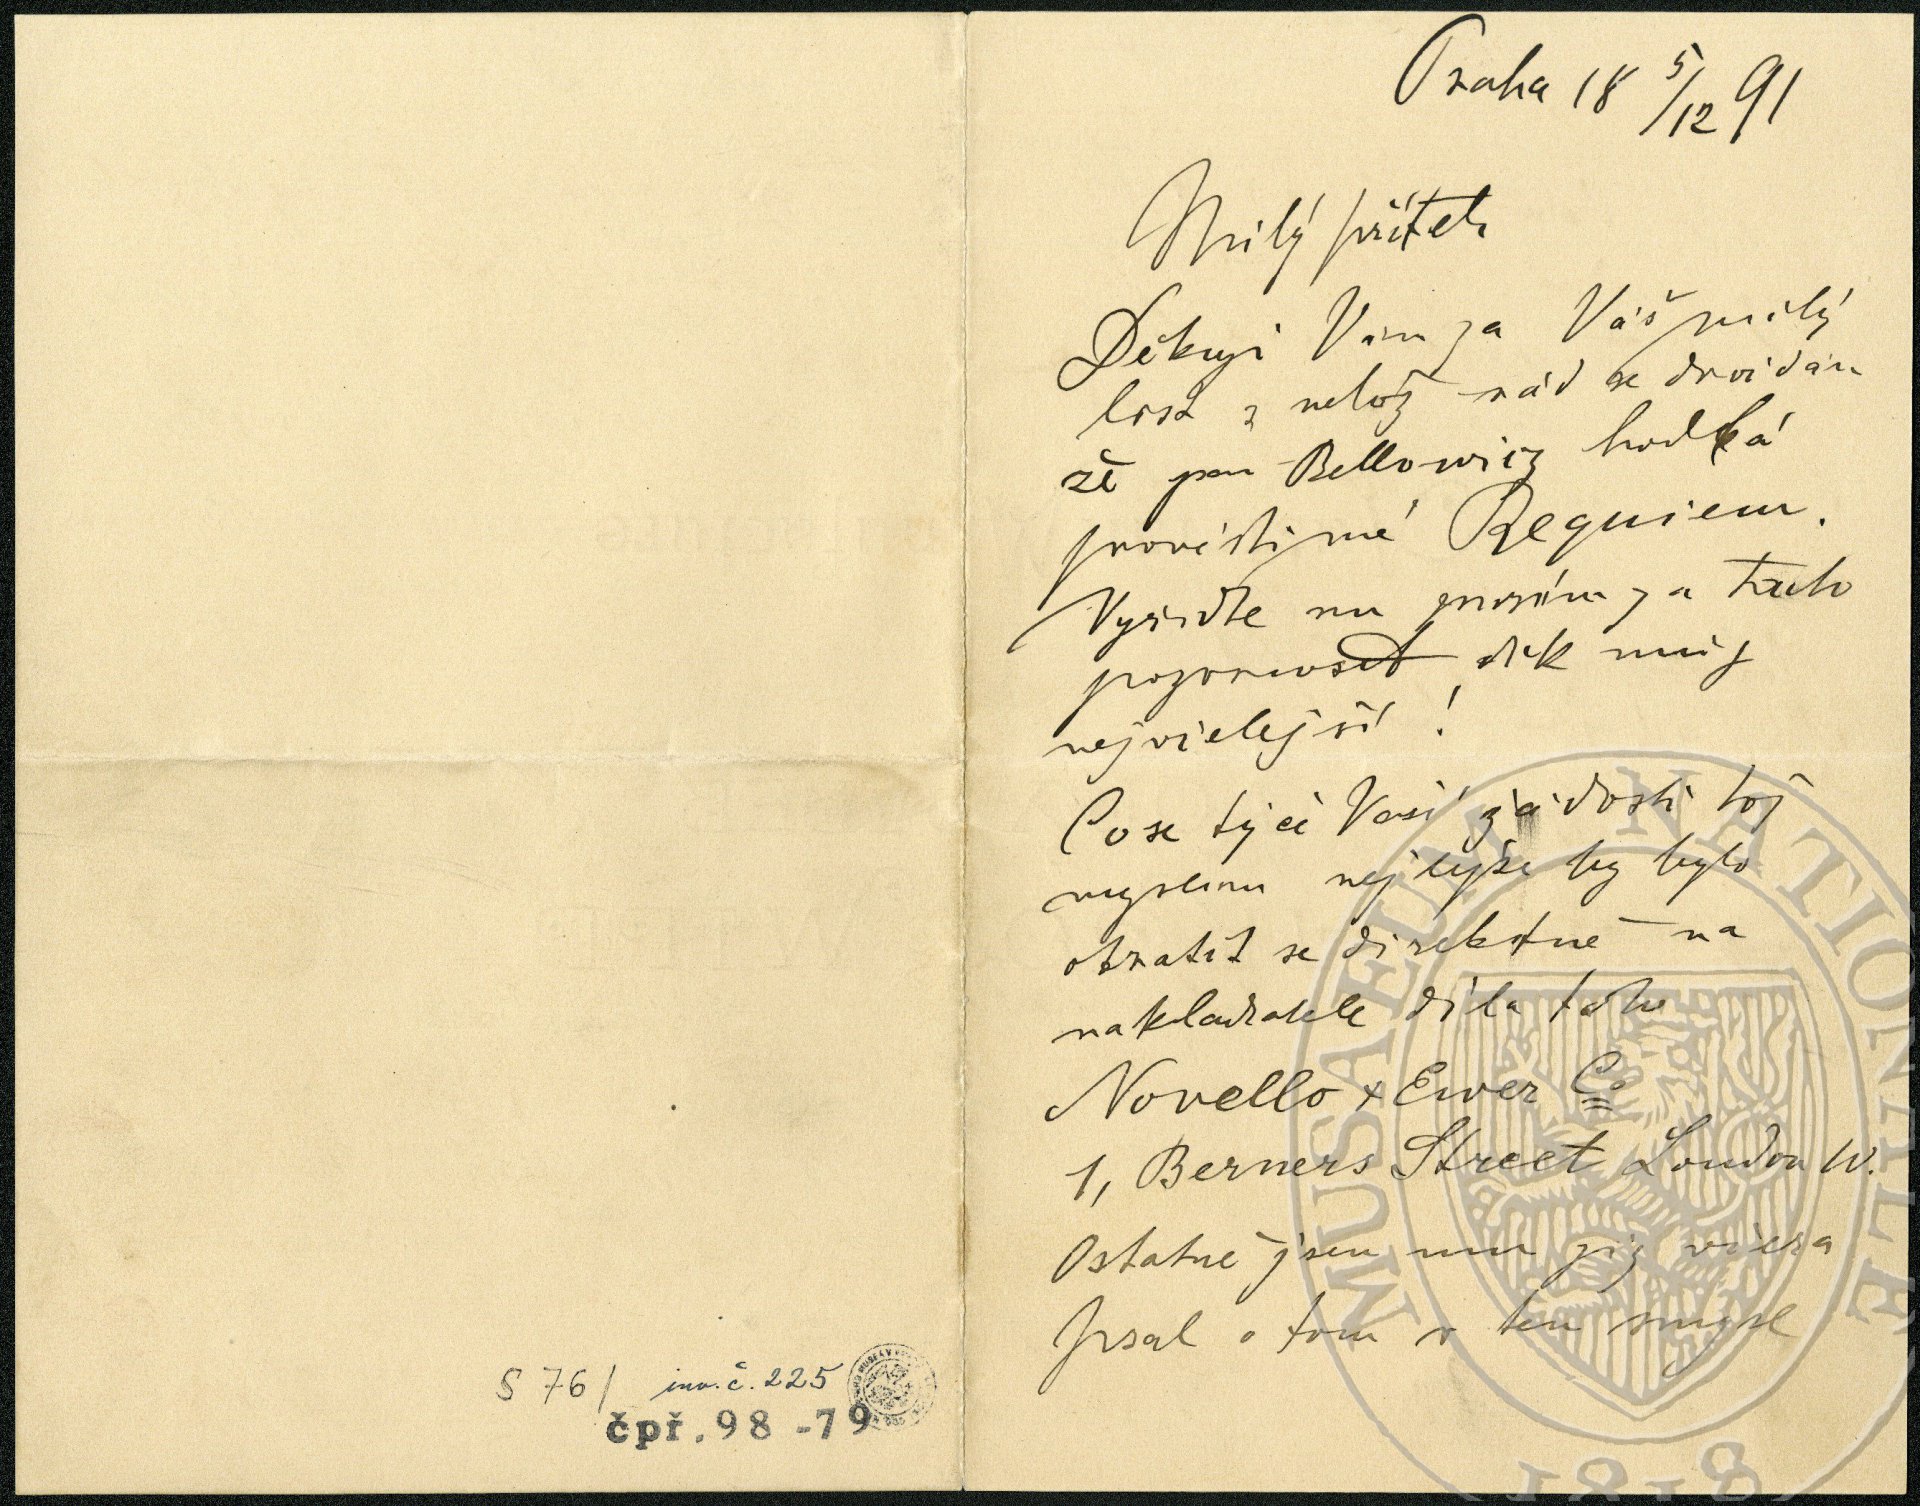 S 76/ inv. č. 225
čpř. 98 -79
Praha 18 5/12 91
Milý příteli
Děkuji Vám za Váš milý
list z nehož rád se dovídám
že pan Bellowicz hodlá
provésti mé Requiem.
Vyřiďte mu prosím za tuto
pozornost dík můj
nejvřelejší!
Co se týče Vaší žádosti tož
myslím nejlépe by bylo
obrátit se direktně na
nakladatele díla toho
Novello & Ewer Co
1, Berners Street London W.
Ostatně jsem mu již včera
psal o tom v ten smysl
MUSAEUM NATIONALE
1818